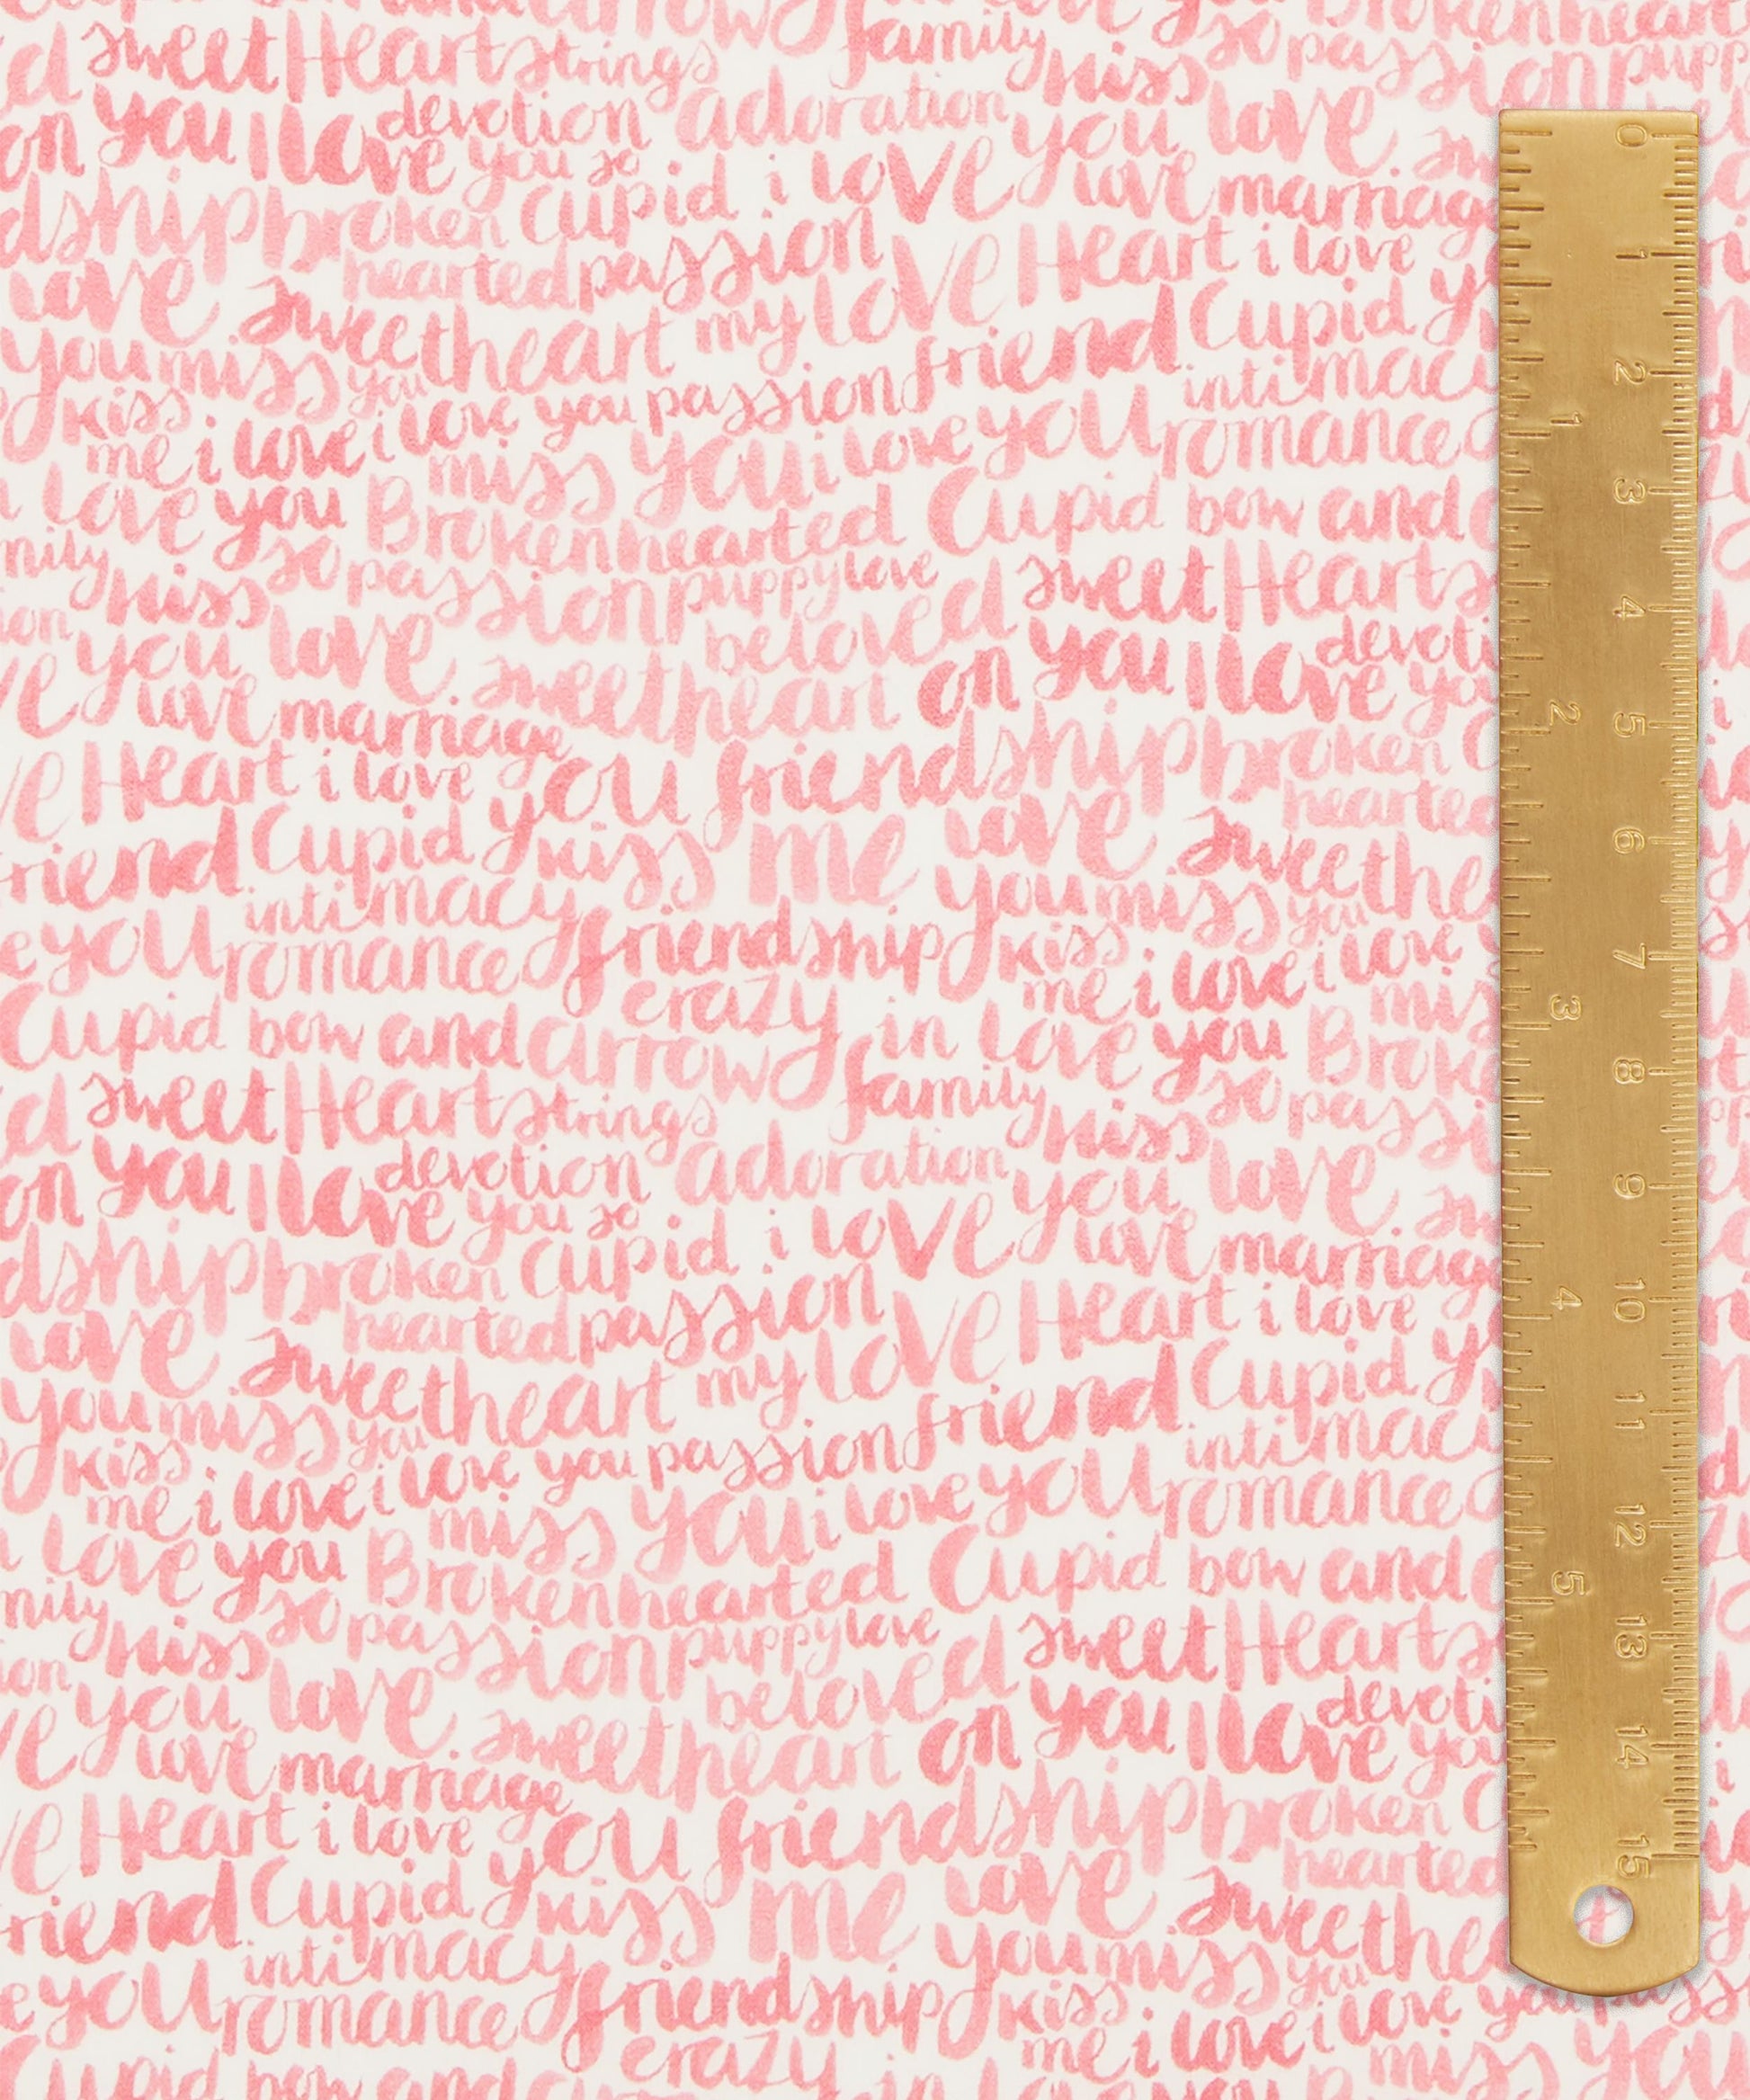 arrow love you Brokenheart
d sweet Heart strings family kiss so passion pupp
on you I love devotion adoration you love. sw
love you so
dship broken Cupid i love love marriag
love hearted passion Heart i love
sweetheart my love friend Cupid y
you miss you intimacy
kiss me i love i love you passion
miss you i love you romance
love you Broken hearted Cupid bow and
mily kiss so passion puppy love beloved sweet Heart s
ion you love. sweetheart on you I love devoti
ve love marriage yo
ve Heart i love you friendship broken C
hearted
riend Cupid kiss me love sweethe
intimacy you miss you
e you romance friendship kiss me i love i love
crazy mis
Cupid bow and arrow in love you Broke
d sweet Heart strings family kiss so passi
on you I love devotion adoration you love. sw
love you so
dship broken Cupid i love love marriag
love hearted passion Heart i love
sweetheart my love friend Cupid y
you miss you intimacy
kiss me i love i love you passion
miss you i love you romance
love you Broken hearted Cupid bow and
mily kiss so passion puppy love beloved sweet Heart s
ion you love. sweetheart on you I love devoti
ve love marriage you
ve Heart i love you friendship broken C
hearted
riend Cupid kiss me love sweethe
intimacy you miss you
e you romance friendship kiss me i love i love you pass
crazy miss you
Cupid bow and in love you
0 1 2 3 4 5 6 7 8 9 10 11 12 13 14 15
1 2 3 4 5